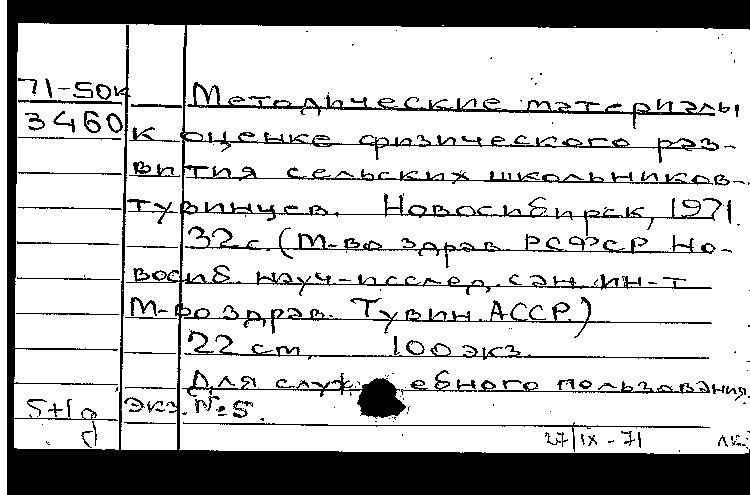 71-50к Методические материалы
3460 к оценке физического раз-
вития сельских школьников-
тувинцев. Новосибирск, 1971.
32 с. (М-во здрав. РСФСР. Но-
восиб. науч-исслед. сан. ин-т
М-во здрав. Тувин. АССР.)
22 см. 100 экз.
Для служебного пользования.
5+1д экз. №5.
27/IX-71